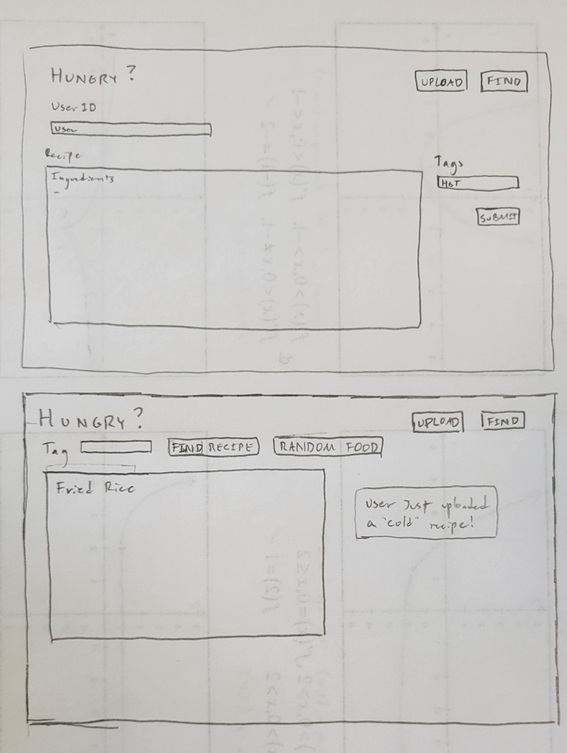 HUNGRY?
UPLOAD
FIND
User ID
User
Recipe
Ingredients
Tags
HOT
SUBMIT
HUNGRY?
UPLOAD
FIND
Tag
FIND RECIPE
RANDOM FOOD
Fried Rice
User Just uploaded
a "cold" recipe!